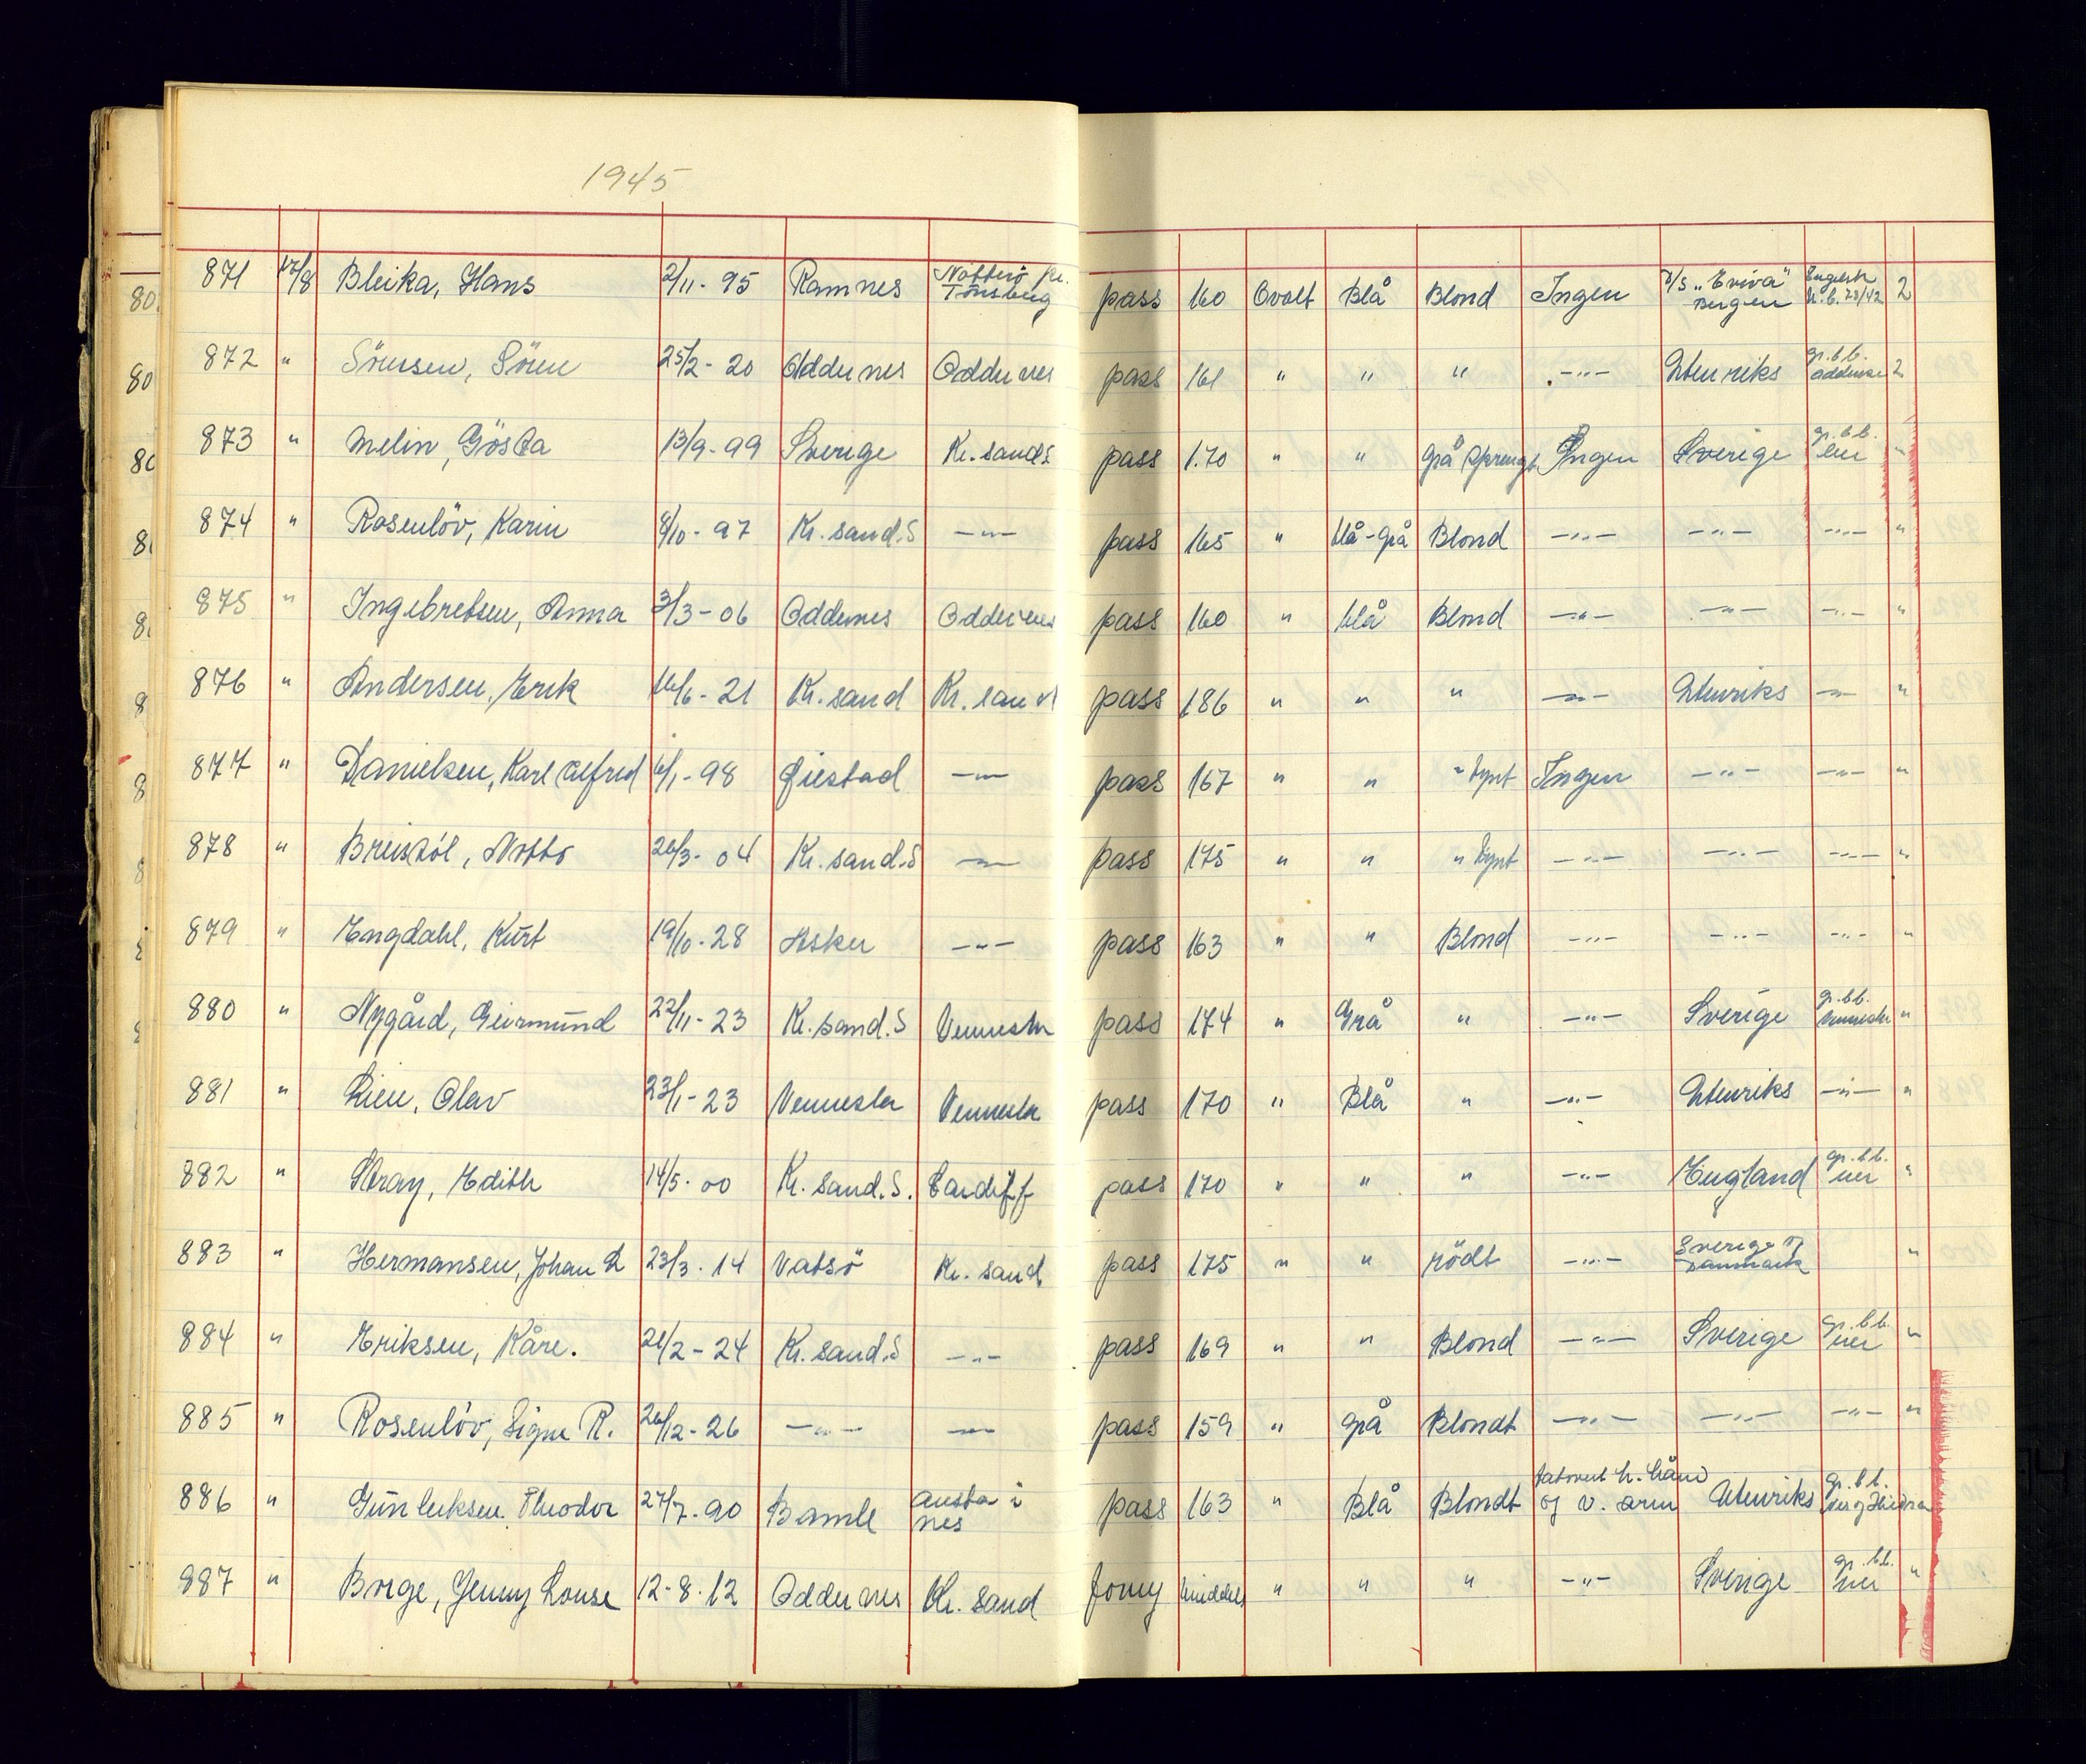 1945
871 17/8 Bleika, Hans 2/11-95 Ramnes Nötterö pr. Tönsberg pass 160 Ovalt Blå Blond Ingen D/S „Eviva" Bergen Engelsk 2
872 " Sörensen, Sören 25/2-20 Oddernes Oddernes pass 161 " " " -"- Utenriks gr.b.b. Oddernes 2
873 " Melin, Gösta 13/9-99 Sverige Kr.sand S pass 1.70 " " Grå sprengt Ingen Sverige gr.b.b. her "
874 " Rosenlöv, Karin 8/10-97 Kr.sand.S -"- pass 165 " blå-grå Blond -"- -"- -"- "
875 " Ingebretsen, Anna 3/3-06 Oddernes Oddernes pass 160 " blå Blond -"- -"- -"- "
876 " Andersen, Erik 16/6-21 Kr.sand Kr.sand pass 186 " " " -"- Utenriks -"- "
877 " Danielsen, Karl Alfred 6/1-98 Öiestad -"- pass 167 " " " tynt Ingen -"- -"- "
878 " Breistöl, Notto 26/3-04 Kr.sand.S -"- pass 175 " " " tynt -"- -"- -"- "
879 " Engdahl, Kurt 19/10-28 Asker -"- pass 163 " " Blond -"- -"- -"- "
880 " Nygård, Geirmund 22/11-23 Kr.sand.S Vennesla pass 174 " Grå " -"- Sverige gr.b.b. Vennesla "
881 " Lien, Olav 23/1-23 Vennesla Vennesla pass 170 " Blå " -"- Utenriks -"- "
882 " Stray, Edith 14/5-00 Kr.sand.S. Cardiff pass 170 " " " -"- England gr.b.b. her "
883 " Hermansen, Johan L 23/3-14 Vatsö Kr.sand pass 175 " " rödt -"- Sverige og Danmark "
884 " Eriksen, Kåre. 21/2-24 Kr.sand.S -"- pass 169 " " Blond -"- Sverige gr.b.b. her "
885 " Rosenlöv, Signe R. 26/12-26 -"- -"- pass 159 " grå Blondt -"- -"- -"- "
886 " Gunleiksen. Theodor 27/7-90 Bamle nes pass 163 " Blå Blondt tatovert h. hånd og v. arm Utenriks gr.b.b.
887 " Borge, Jenny Louse 12-8-12 Oddernes Kr.sand forny middels " " " -"- Sverige gr.b.b. her "
80
80
80
8
8
8
8
8